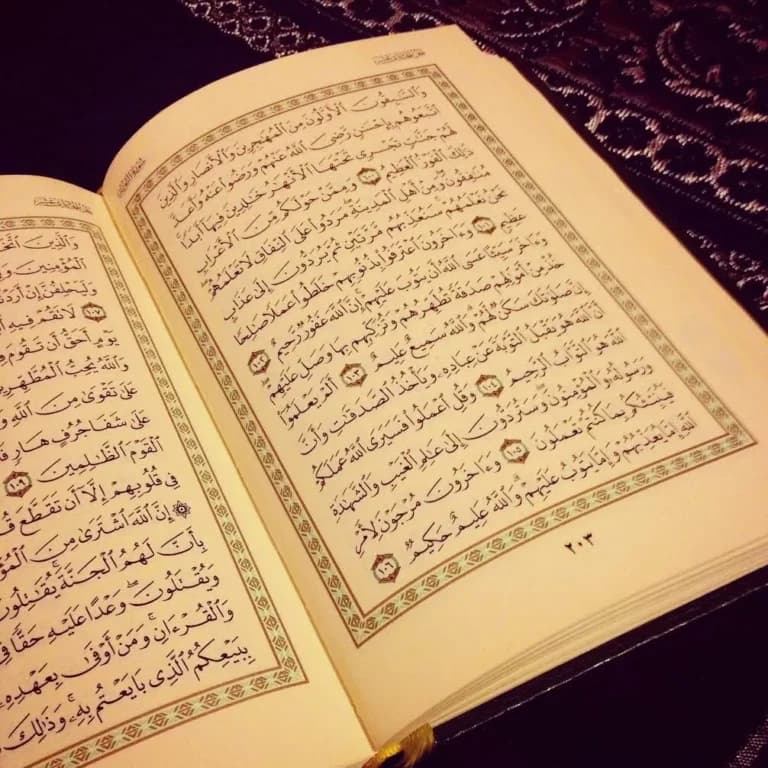 وَٱلسَّٰبِقُونَ ٱلْأَوَّلُونَ مِنَ ٱلْمُهَٰجِرِينَ وَٱلْأَنصَارِ وَٱلَّذِينَ
ٱتَّبَعُوهُم بِإِحْسَٰنٍ رَّضِىَ ٱللَّهُ عَنْهُمْ وَرَضُوا۟ عَنْهُ وَأَعَدَّ
لَهُمْ جَنَّٰتٍ تَجْرِى تَحْتَهَا ٱلْأَنْهَٰرُ خَٰلِدِينَ فِيهَآ أَبَدًا
ذَٰلِكَ ٱلْفَوْزُ ٱلْعَظِيمُ ١٠٠ وَمِمَّنْ حَوْلَكُم مِّنَ ٱلْأَعْرَابِ
مُنَٰفِقُونَ وَمِنْ أَهْلِ ٱلْمَدِينَةِ مَرَدُوا۟ عَلَى ٱلنِّفَاقِ لَا تَعْلَمُهُمْ
نَحْنُ نَعْلَمُهُمْ سَنُعَذِّبُهُم مَّرَّتَيْنِ ثُمَّ يُرَدُّونَ إِلَىٰ عَذَابٍ
عَظِيمٍ ١٠١ وَءَاخَرُونَ ٱعْتَرَفُوا۟ بِذُنُوبِهِمْ خَلَطُوا۟ عَمَلًا صَٰلِحًا
وَءَاخَرَ سَيِّئًا عَسَى ٱللَّهُ أَن يَتُوبَ عَلَيْهِمْ إِنَّ ٱللَّهَ غَفُورٌ رَّحِيمٌ ١٠٢
خُذْ مِنْ أَمْوَٰلِهِمْ صَدَقَةً تُطَهِّرُهُمْ وَتُزَكِّيهِم بِهَا وَصَلِّ عَلَيْهِمْ
إِنَّ صَلَوٰتَكَ سَكَنٌ لَّهُمْ وَٱللَّهُ سَمِيعٌ عَلِيمٌ ١٠٣ أَلَمْ يَعْلَمُوٓا۟
أَنَّ ٱللَّهَ هُوَ يَقْبَلُ ٱلتَّوْبَةَ عَنْ عِبَادِهِۦ وَيَأْخُذُ ٱلصَّدَقَٰتِ وَأَنَّ
ٱللَّهَ هُوَ ٱلتَّوَّابُ ٱلرَّحِيمُ ١٠٤ وَقُلِ ٱعْمَلُوا۟ فَسَيَرَى ٱللَّهُ عَمَلَكُمْ
وَرَسُولُهُۥ وَٱلْمُؤْمِنُونَ وَسَتُرَدُّونَ إِلَىٰ عَٰلِمِ ٱلْغَيْبِ وَٱلشَّهَٰدَةِ
فَيُنَبِّئُكُم بِمَا كُنتُمْ تَعْمَلُونَ ١٠٥ وَءَاخَرُونَ مُرْجَوْنَ لِأَمْرِ
ٱللَّهِ إِمَّا يُعَذِّبُهُمْ وَإِمَّا يَتُوبُ عَلَيْهِمْ وَٱللَّهُ عَلِيمٌ حَكِيمٌ ١٠٦
٢٠٣
وَٱلَّذِينَ
ٱلْمُؤْمِنِينَ
وَلَيَحْلِفُنَّ إِنْ أَرَدْنَا
١٠٧ لَا تَقُمْ فِيهِ
يَوْمٍ أَحَقُّ أَن تَقُومَ
وَٱللَّهُ يُحِبُّ ٱلْمُطَّهِّرِينَ
عَلَىٰ تَقْوَىٰ مِنَ ٱللَّهِ
عَلَىٰ شَفَا جُرُفٍ هَارٍ
ٱلْقَوْمَ ٱلظَّٰلِمِينَ ١٠٩
فِى قُلُوبِهِمْ إِلَّآ أَن تَقَطَّعَ
۞ إِنَّ ٱللَّهَ ٱشْتَرَىٰ مِنَ
بِأَنَّ لَهُمُ ٱلْجَنَّةَ يُقَٰتِلُونَ
وَيُقْتَلُونَ وَعْدًا عَلَيْهِ حَقًّا فِى
وَٱلْقُرْءَانِ وَمَنْ أَوْفَىٰ بِعَهْدِهِۦ
بِبَيْعِكُمُ ٱلَّذِى بَايَعْتُم بِهِۦ وَذَٰلِكَ